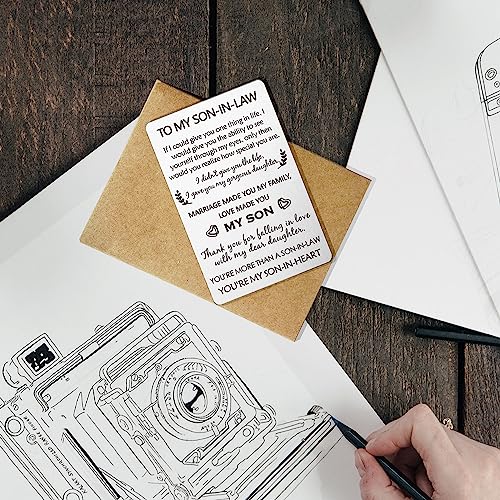 TO MY SON-IN-LAW
If I could give you one thing in life, I
would give you the ability to see
yourself through my eyes, only then
would you realize how special you are.
I didn't give you the life,
I gave you my gorgeous daughter.
MARRIAGE MADE YOU MY FAMILY,
LOVE MADE YOU
MY SON
Thank you for falling in love
with my dear daughter.
YOU'RE MORE THAN A SON-IN-LAW
YOU'RE MY SON-IN-HEART